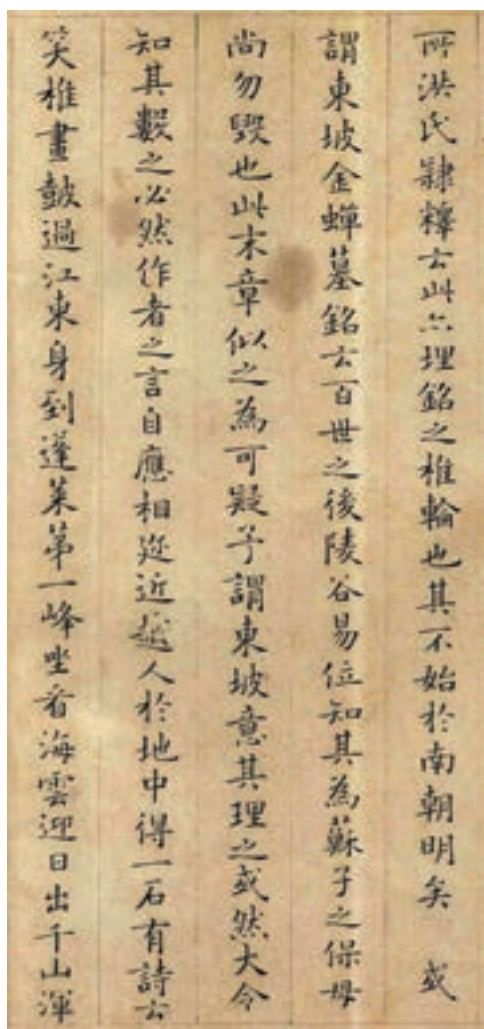 所洪氏隸釋云此亦埋銘之椎輪也其不始於南朝明矣　或
謂東坡金蟬墓銘云百世之後陵谷易位知其為蘇子之保母
尚勿毀也此末章似之為可疑予謂東坡意其理之或然大令
知其數之必然作者之言自應相逕近越人於地中得一石有詩云
笑椎畫鼓過江東身到蓬萊第一峰坐看海雲迎日出千山渾